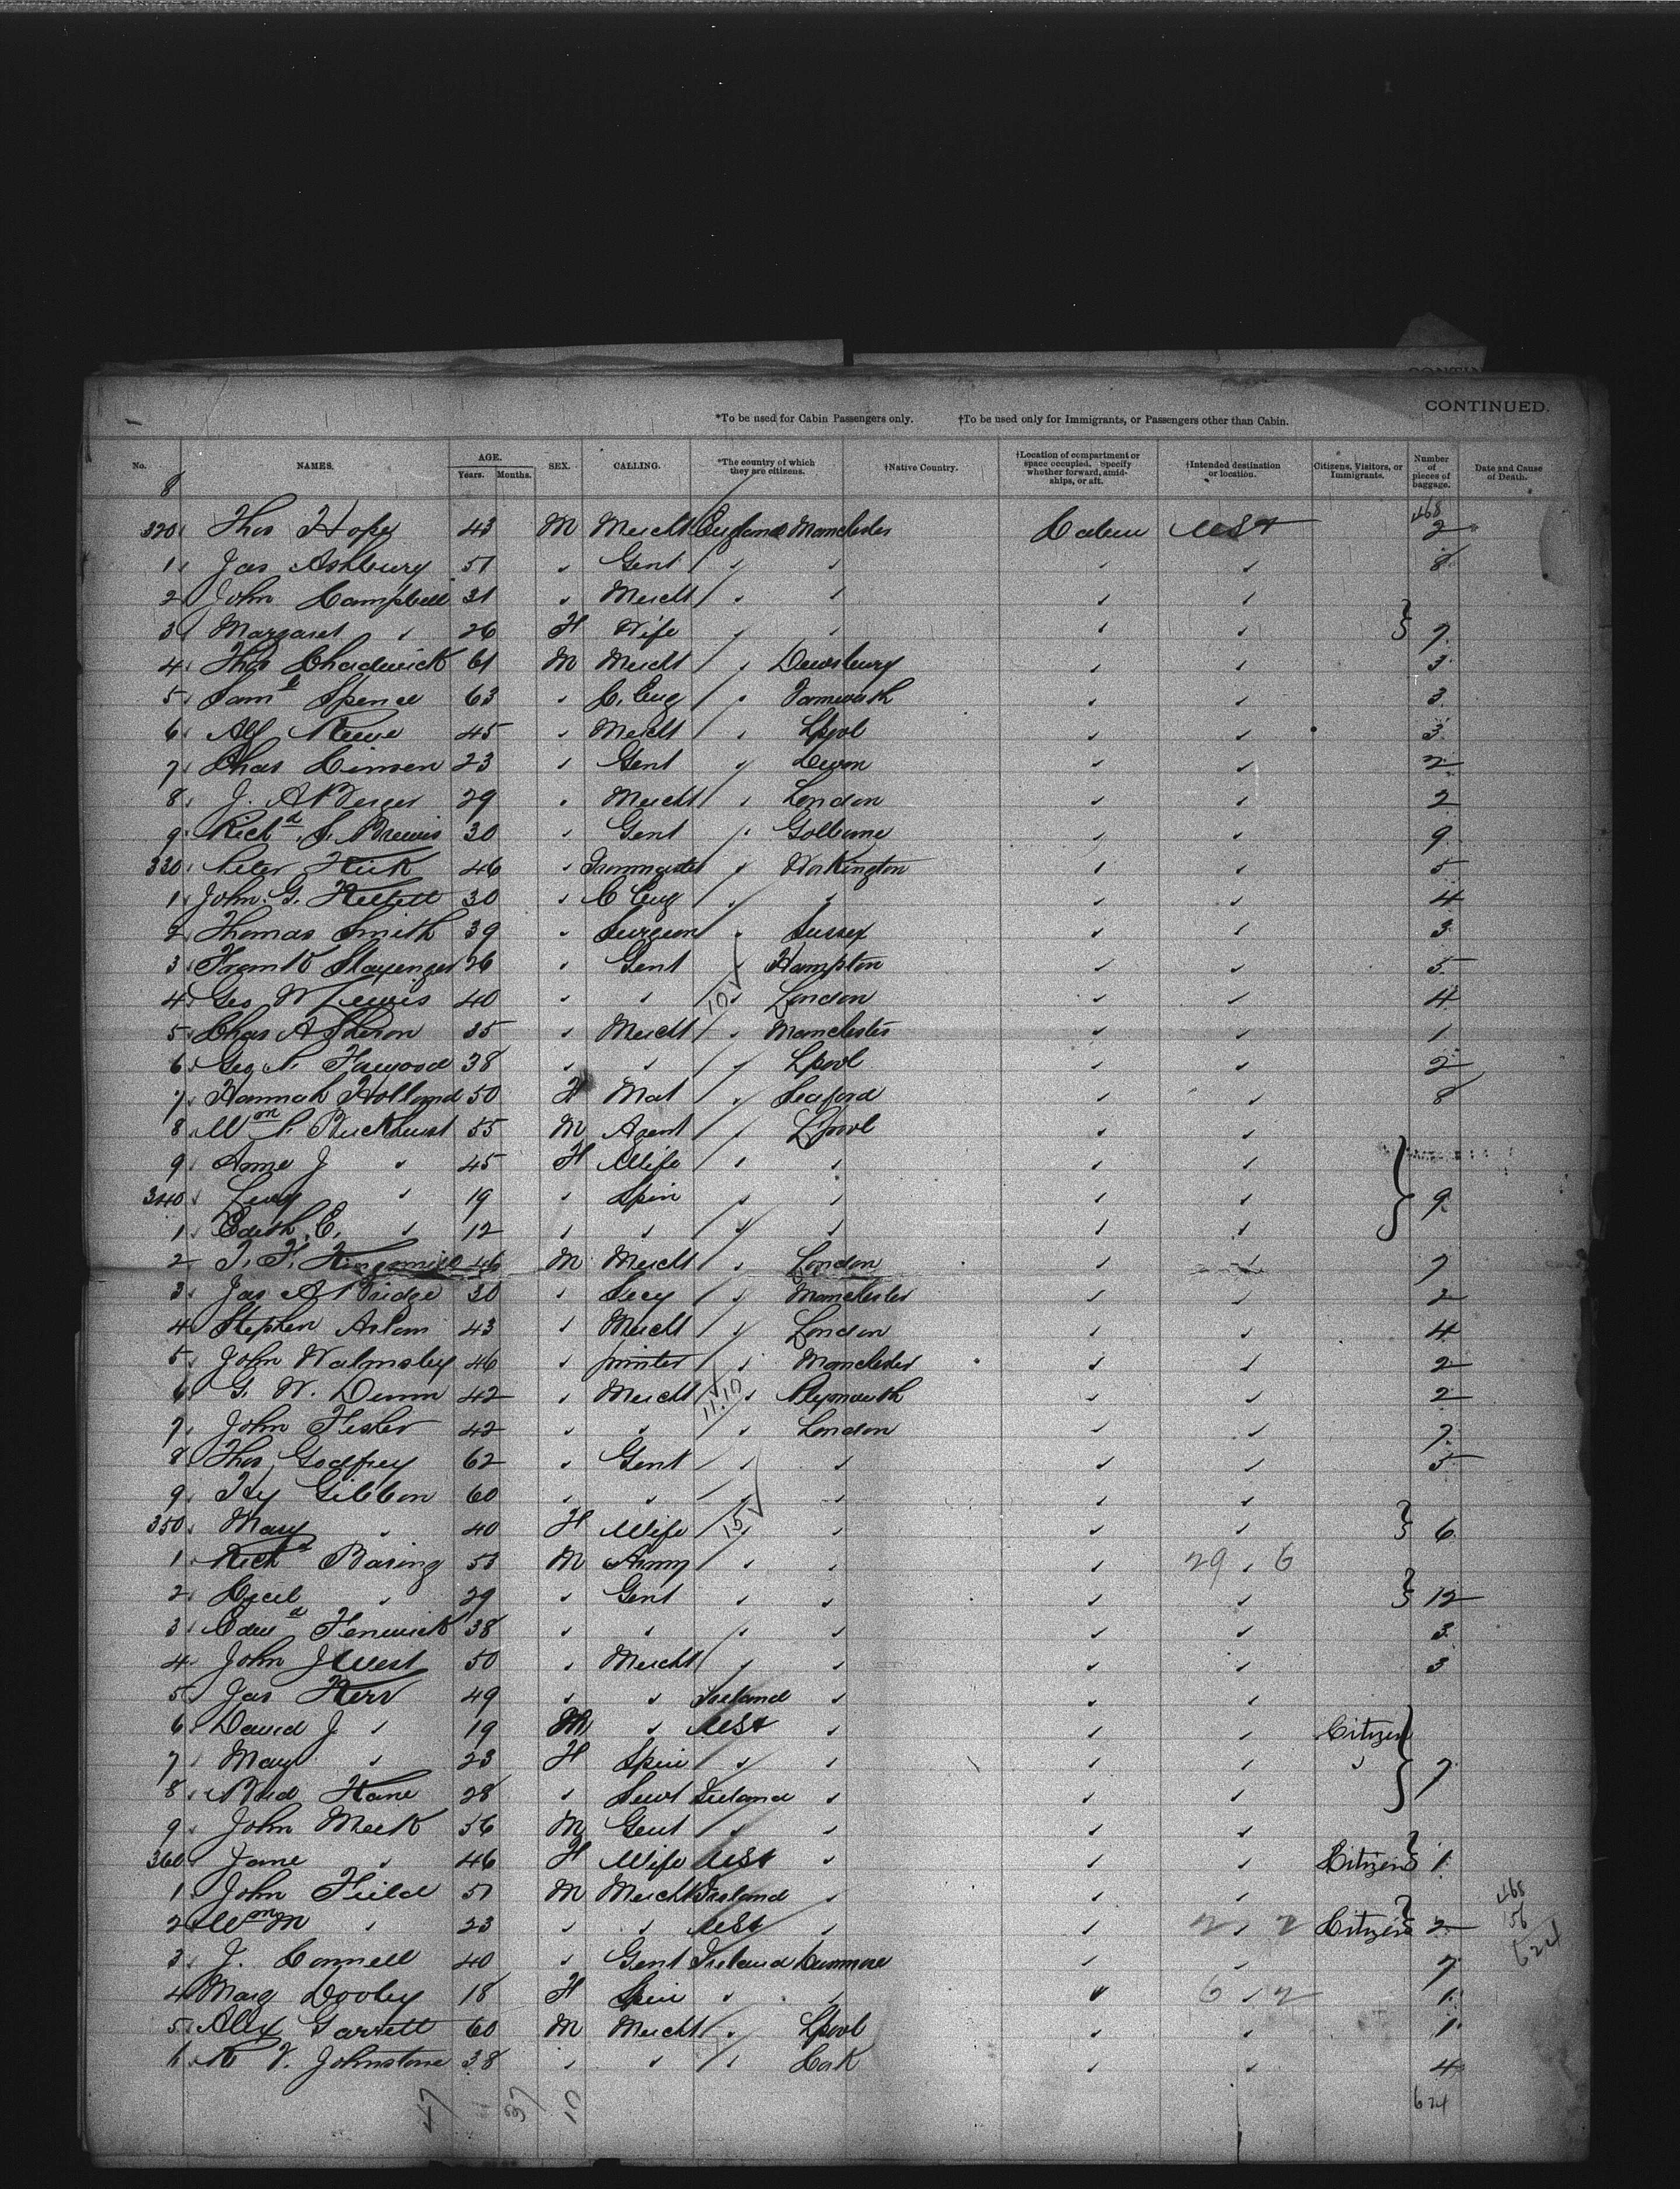 CONTIN
CONTINUED.
*To be used for Cabin Passengers only. †To be used only for Immigrants, or Passengers other than Cabin.
No. NAMES. AGE. Years. Months. SEX. CALLING. *The country of which they are citizens. †Native Country. †Location of compartment or space occupied. Specify whether forward, amidships, or aft. †Intended destination or location. Citizens, Visitors, or Immigrants. Number of pieces of baggage. Date and Cause of Death.
8
468
320 Thos Hope 43 M Mercht England Manchester USA 2
1 Jas Ashbury 51 " Gent " " " " 8
2 John Campbell 31 " Mercht " " " "
3 Margaret " 26 F Wife " " " " } 7
4 Thos Chadwick 61 M Mercht " Dewsbury " " 3
5 Saml Spence 63 " C. Eng " Tamworth " " 3
6 Alf Reeve 45 " Mercht " Lpool " " 3
7 Chas 23 " Gent " Devon " " 2
8 J. A Berger 29 " Mercht " London " " 2
9 Richd S. Brewis 30 " Gent " Golborne " " 9
330 Peter Kirk 46 " Ironmaster " Workington " " 5
1 John. G. Kellett 30 " C Eng " " " " 4
2 Thomas Smith 39 " Surgeon " Sussex " " 3
3 Frank Slazenger 26 " Gent " Hampton " " 5
4 Geo W Lewis 40 " " " London " " 4
10
5 Chas A 35 " Mercht " Manchester " " 1
6 Geo P. 38 " " " Lpool " " 2
7 Hannah Holland 50 F Mat " Seaford " " 8
8 Wm P. Buckhurst 55 M Agent " Lpool " "
9 Anne J " 45 F Wife " " " "
340 Lucy " 19 " Spin " " " " } 9
1 Edith E. " 12 " " " " " "
2 T. F. Kingsmill 46 M Mercht " London " " 7
3 Jas A Bridge 30 " Secy " Manchester " " 2
4 Stephen Aslam 43 " Mercht " London " " 4
5 John Walmsley 46 " printer " Manchester " " 2
6 G. W. Dunn 42 " Mercht " Plymouth " " 2
11.10
7 John Fisher 42 " " " London " " 7
8 Thos Godfrey 62 " Gent " " " " 5
9 Hy Gibbon 60 " " " " " "
350 Mary " 40 F Wife " " " " } 6
15
1 Richd Baring 53 M Army " " " 29 " 6
2 Cecil " 29 " Gent " " " " } 12
3 Edwd Fenwick 38 " " " " " " 3
4 John J West 50 " Mercht " " " " 3
5 Jas Kerr 49 " " Ireland " " "
6 David J " 19 M " USA " " " Citizen
7 Mary " 23 F Spin " " " " " } 7
8 Brid Kane 28 " Servt Ireland " " "
9 John Meek 56 M Gent " " " "
360 Jane " 46 F Wife USA " " " Citizens } 1
1 John Field 51 M Mercht Ireland " " "
2 Wm M " 23 " " USA " " 2 " 2 Citizens } 2
468
156
624
3 J. Connell 40 " Gent Ireland Dunmore " " 7
4 Marg Dooley 18 F Spin " " " 6 " 2 1
5 Alex Garrett 60 M Mercht " Lpool " " 1
6 R V. Johnstone 38 " " " Cork " " 4
47 37 10
624